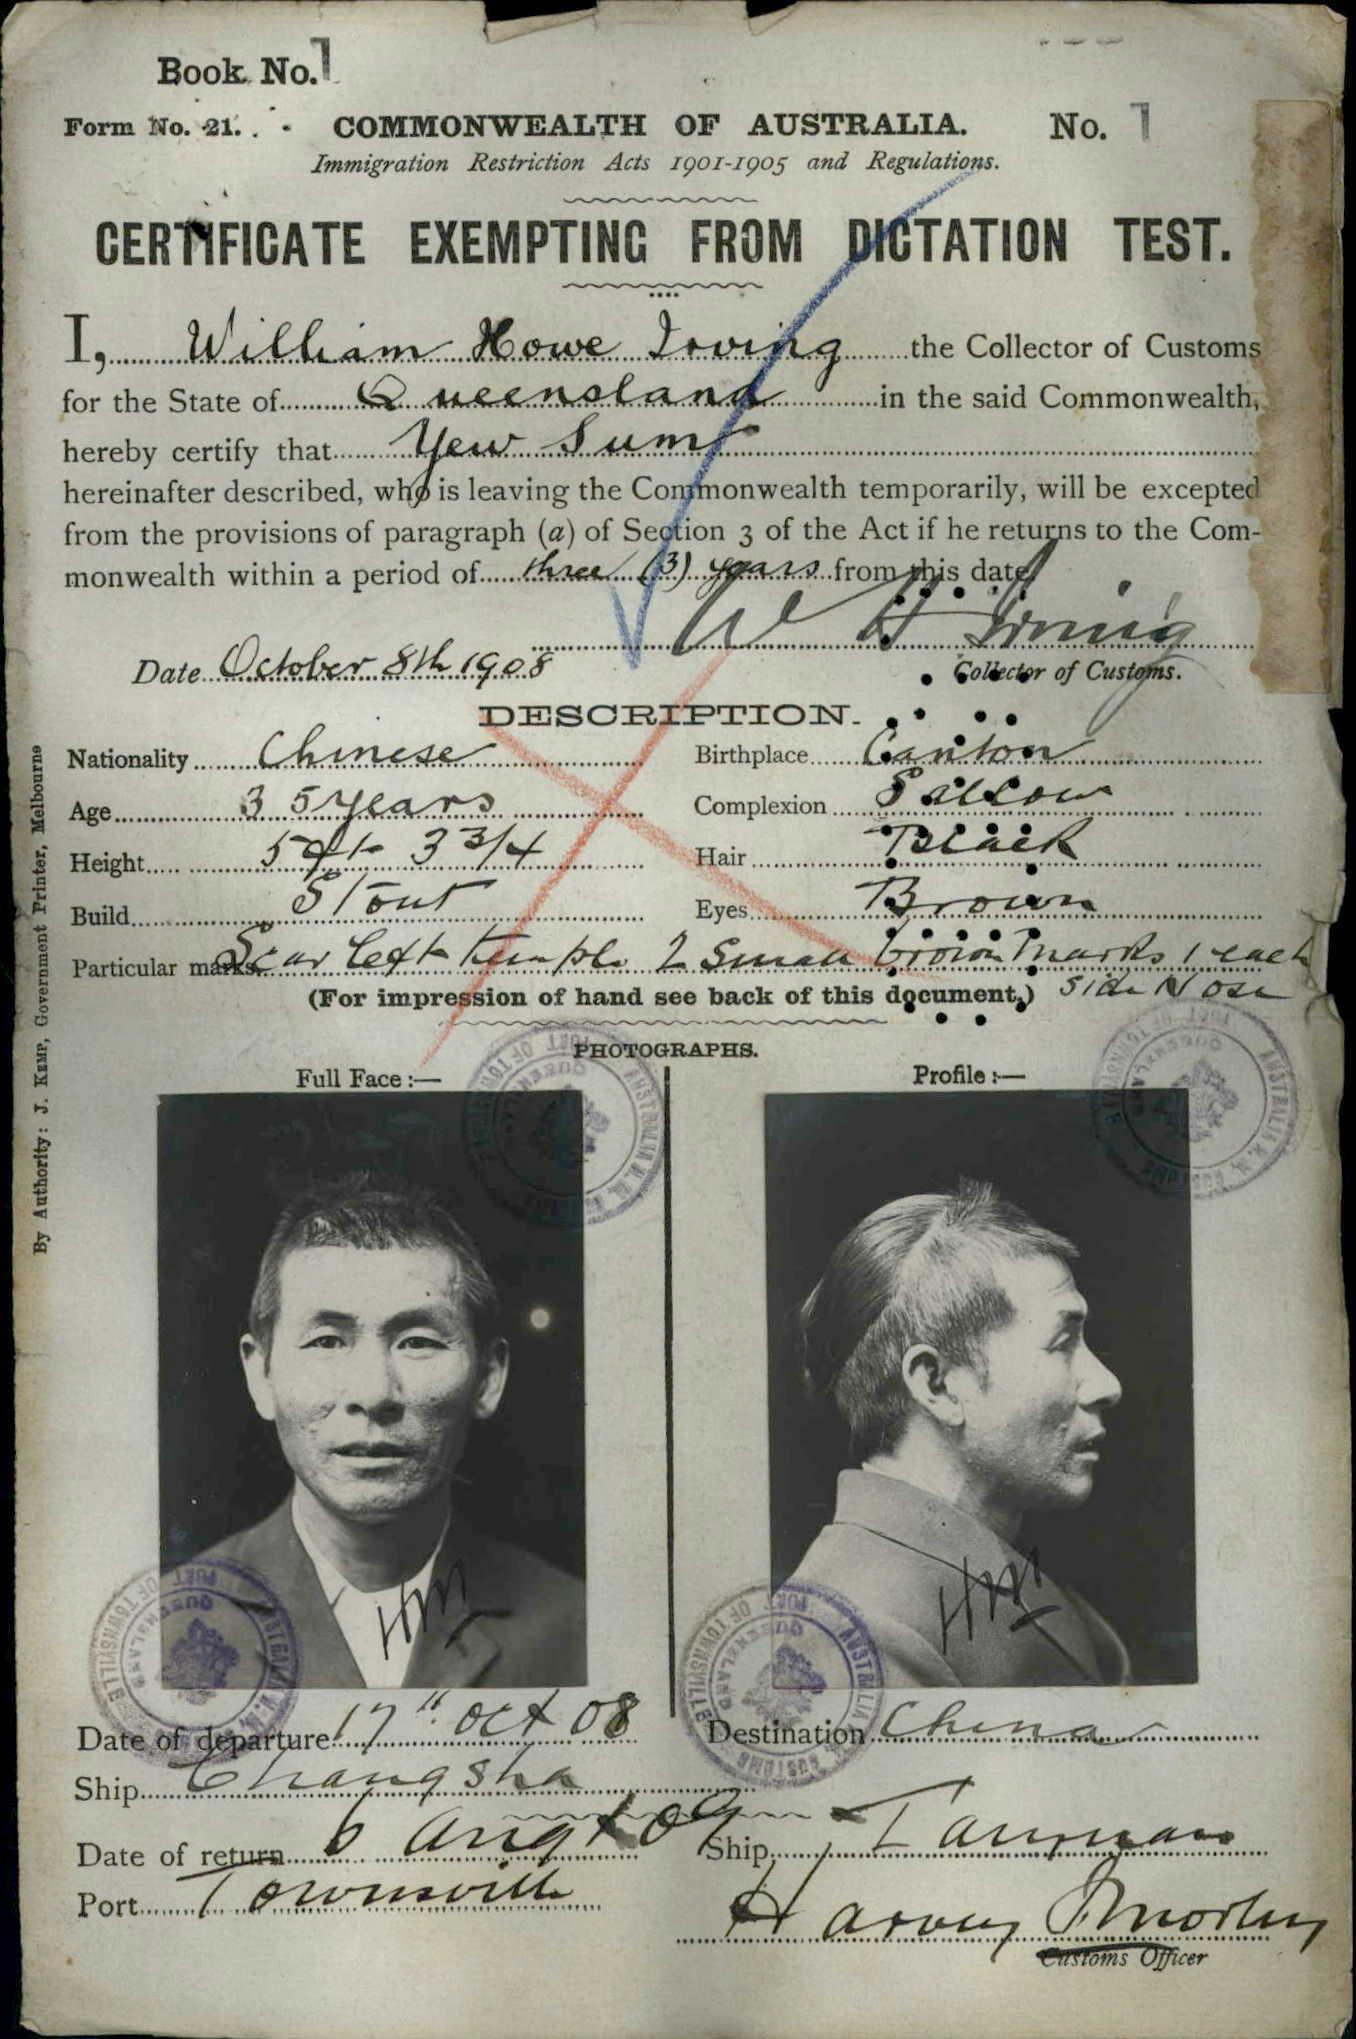 Book No. 1
Form No. 21. COMMONWEALTH OF AUSTRALIA. No. 1
Immigration Restriction Acts 1901-1905 and Regulations.
CERTIFICATE EXEMPTING FROM DICTATION TEST.
I, William Howe Irving the Collector of Customs
for the State of Queensland in the said Commonwealth,
hereby certify that Yew Sum
hereinafter described, who is leaving the Commonwealth temporarily, will be excepted
from the provisions of paragraph (a) of Section 3 of the Act if he returns to the Com-
monwealth within a period of three (3) years from this date.
W H Irving
Date October 8th 1908 Collector of Customs.
DESCRIPTION.
Nationality Chinese Birthplace Canton
Age 35 years Complexion Sallow
Height 5 ft 3 3/4 Hair Black
Build Stout Eyes Brown
Particular marks Scar left temple 2 small brown marks 1 each
(For impression of hand see back of this document.) side Nose
PHOTOGRAPHS.
Full Face :— Profile :—
HM HM
PORT OF TOWNSVILLE
QUEENSLAND
Date of departure 17th Oct 08 Destination China
Ship Changsha
Date of return 6 Augt 09 Ship Taiyuan
Port Townsville Harvey
Customs Officer
By Authority: J. KEMP, Government Printer, Melbourne